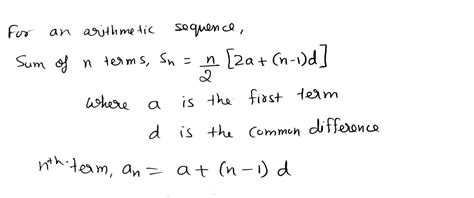 For an arithmetic sequence,
Sum of n terms, Sn = n/2 [2a + (n-1)d]
where a is the first term
d is the common difference
nth. term, an = a + (n-1) d